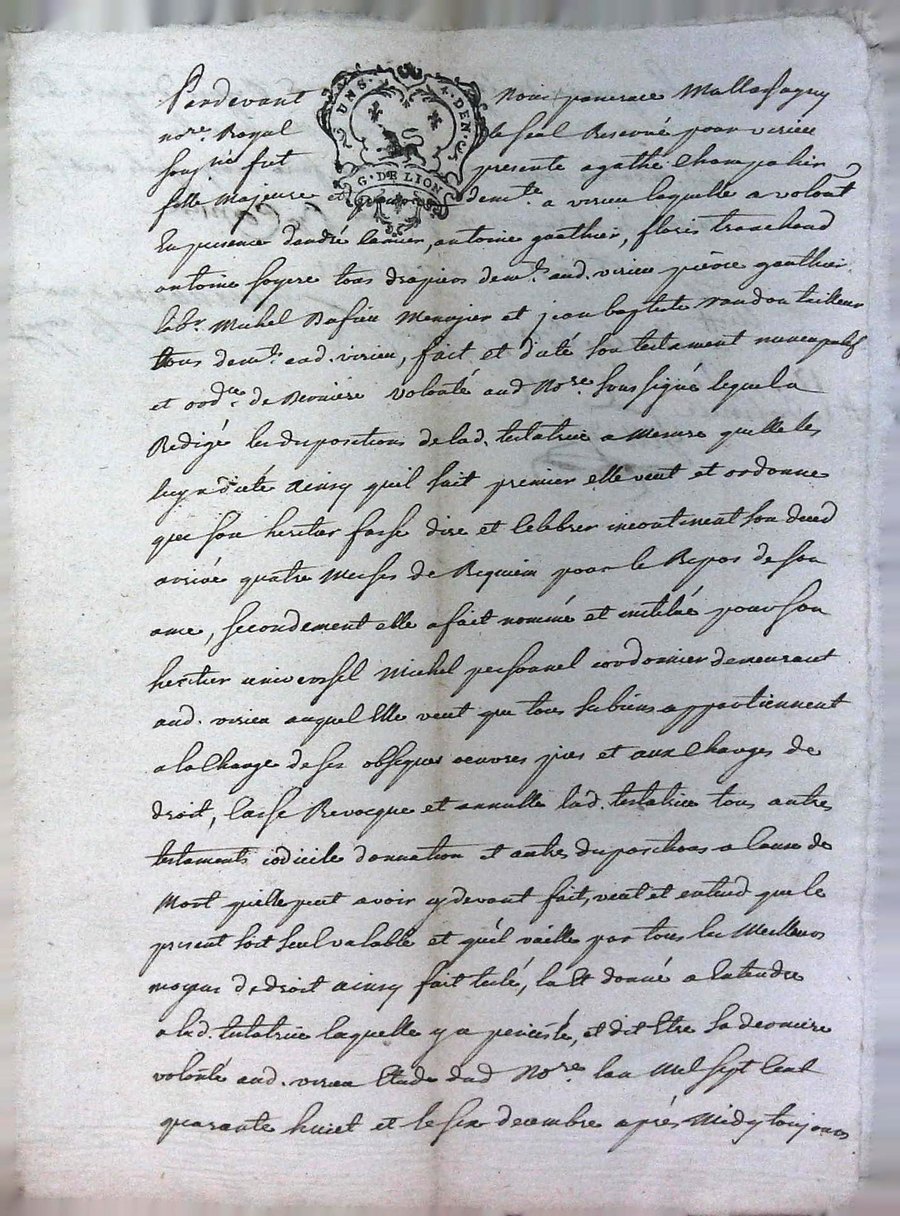 Pardevant Nous pancrace Mallassagny
no.re Royal le seul Reservé pour virieu
sousné fut presente agathe Champalier
fille Majeure et demte. a virieu laquelle a volont
En presence dandré antoine gauthier, floris tranchand
antoine foyere tous drapiers demt. aud. virieu pierre gauthier
labr. Michel Dufieu Menager et jean baptiste tailleur
tous demt. aud. virieu, fait et dicté son testament nuncupatif
et ordce. de Derniére volonté aud Nore. soussigné lequel a
Redigé les dispositions de lad. testatrice a Mesure quelle les
luy a dicté ainsy quil suit premier elle veut et ordonne
que son heritier fasse dire et Celebrer incontinent son deced
arrivé quatre Messes de Requiem pour le Repos de son
ame, secondement elle a fait nommé et institué pour son
heritier universsel Michel personnel cordonnier demeurant
aud. virieu auquel Elle veut que tous ses biens appartiennent
a la Charge de ses obseques oeuvres pies et aux Charges de
droit, Casse Revocque et annulle lad. testatrice tous autres
testaments codicile donnation et autres dispositions a Cause de
Mort quelle peut avoir cydevant fait, veut et entend que le
present soit seul valable et qu'il vaille par tous les Meilleurs
moyens de droit ainsy fait testé, lu Et donné a Entendre
a lad. testatrice laquelle y a persisté, et dit Etre sa derniere
volonté aud. virieu Etude dud Nore. lan Mil sept Cent
quarante huict et le six decembre aprés Midy toujours
UNS. 4. DEN.
G. DE LION